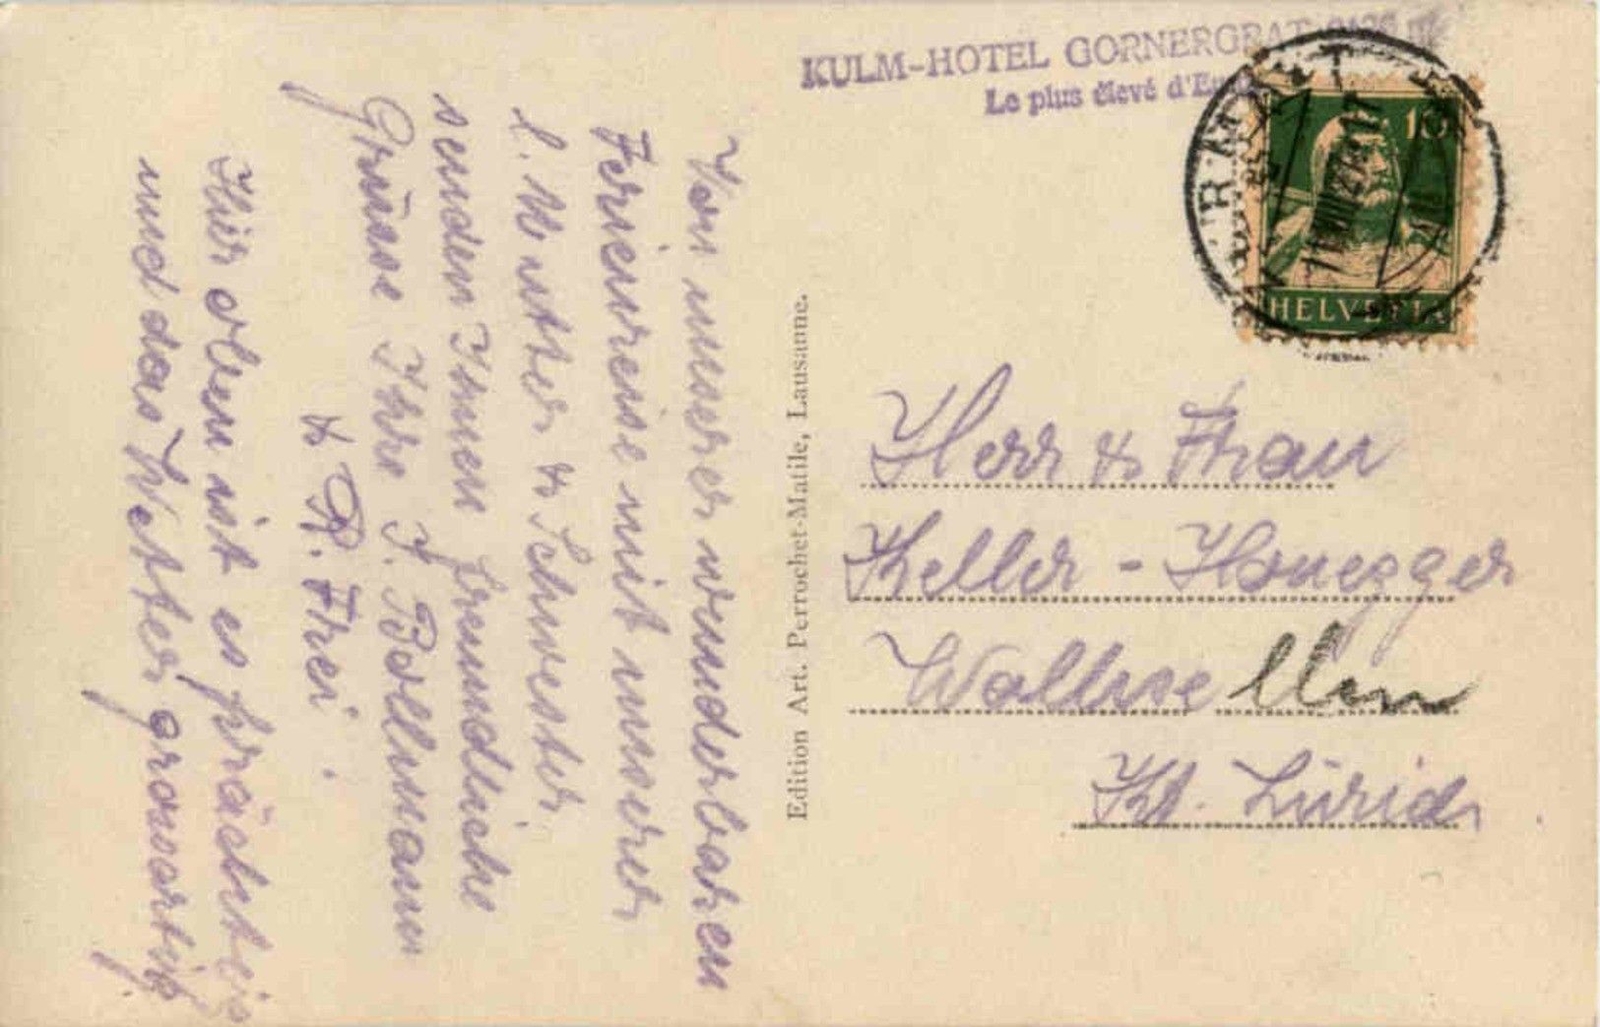 Von unserer wunderbaren
Ferienreise mit unserer
l. Mutter & Schwester
senden Ihnen freundliche
Grüsse Ihre J. Bollmann
& R. Frei.
Hier oben ist es prächtig
und das Wetter grossartig!
Edition Art. Perrochet-Matile, Lausanne.
KULM-HOTEL GORNERGRAT
Le plus élevé
ZERMATT
10
HELVETIA
Herr & Frau
Keller - Honegger
Kt. Zürich